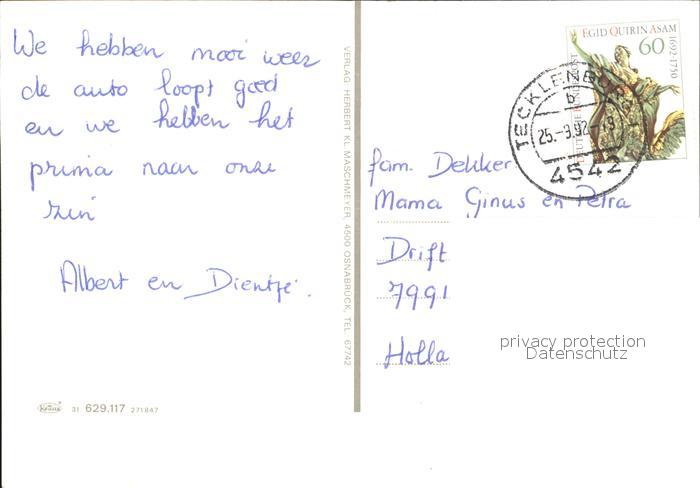 We hebben mooi weer
de auto loopt goed
en we hebben het
prima naar onze
zin
Albert en Dientje.
Kruger
31 629.117 271847
VERLAG HERBERT KL. MASCHMEYER, 4500 OSNABRÜCK, TEL. 67742
EGID QUIRIN ASAM
60
1692-1750
DEUTSCHE BUNDESPOST
TECKLENBURG
b
25.-9.92-19
4542
fam. Dekker
Mama Ginus en Petra
Drift
7991
Holla
privacy protection
Datenschutz